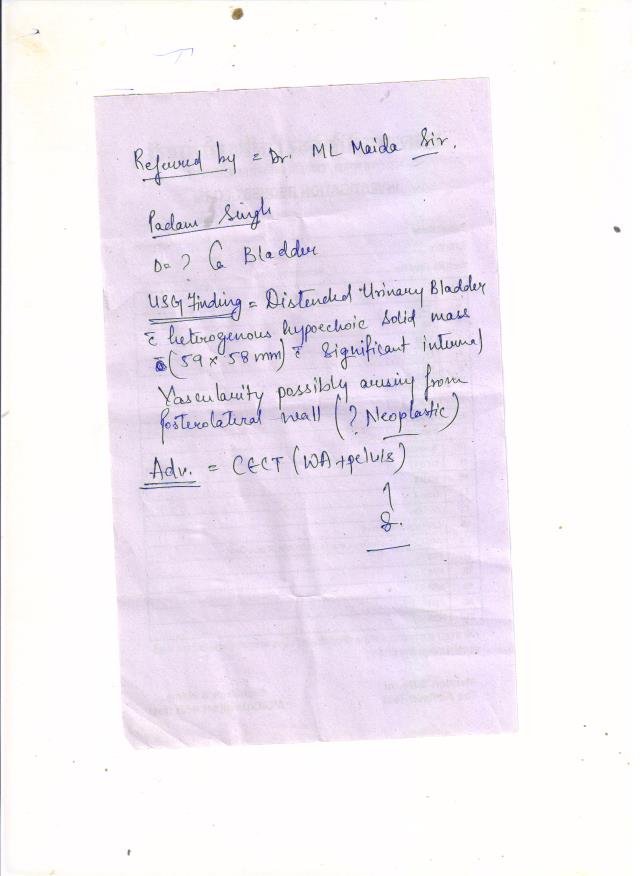 Referred by = Dr. ML Maida Sir.
Padam Singh
D= ? Ca Bladder
USG Finding = Distended Urinary Bladder
c̄ heterogenous hypoechoic solid mass
(59 x 58 mm) c̄ significant internal
Vascularity possibly arising from
posterolateral wall (? Neoplastic)
Adv. = CECT (WA + pelvis)